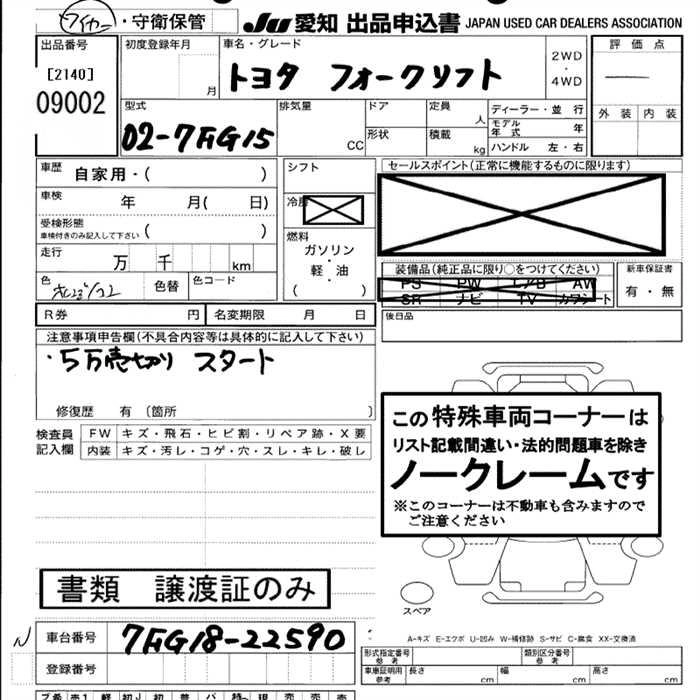 ワイヤー・守衛保管
JU 愛知 出品申込書 JAPAN USED CAR DEALERS ASSOCIATION
出品番号
[2140]
09002
初度登録年月
月
車名・グレード
トヨタ フォークリフト
2WD
・
4WD
評価点
外装 内装
型式
02-7FG15
排気量
CC
ドア
形状
定員
人
積載
kg
ディーラー・並行
モデル年式 年
ハンドル 左・右
車歴 自家用・( )
車検 年 月( 日)
受検形態
車検付きのみ記入して下さい ( )
走行 万 千 km
色
色替
色コード
シフト
冷房
燃料
ガソリン
・
軽・油
( )
セールスポイント(正常に機能するものに限ります)
装備品(純正品に限り○をつけてください)
PS PW L/B AW
SR ナビ TV カワシート
新車保証書
有・無
後日品
R券 円 名変期限 月 日
注意事項申告欄(不具合内容等は具体的に記入して下さい)
・5万売切り スタート
修復歴 有 〔箇所 〕
検査員記入欄
FW キズ・飛石・ヒビ割・リペア跡・X要
内装 キズ・汚レ・コゲ・穴・スレ・キレ・破レ
この特殊車両コーナーは
リスト記載間違い・法的問題車を除き
ノークレームです
※このコーナーは不動車も含みますので
ご注意ください
書類 譲渡証のみ
スペア
N
車台番号 7FG18-22590
登録番号
A-キズ E-エクボ U-凹み W-補修跡 S-サビ C-腐食 XX-交換済
形式指定番号
参考
類別区分番号
参考
車庫証明用
参考
長さ cm 幅 cm 高さ cm